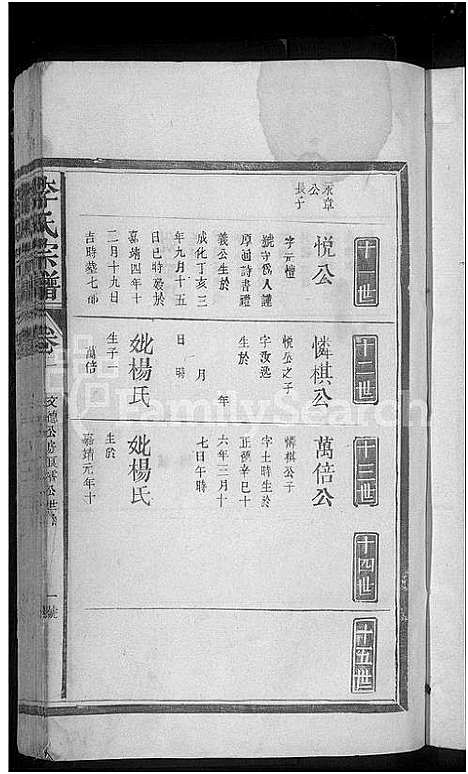 十一世
永章
公
長子
悦公
字元檀
號守爲人謹
厚函詩書禮
義公生於
成化丁亥三
年九月十五
日巳時歿於
嘉靖四年十
二月十九日
吉時墓七都
十二世
憐棋公
悦公之子
字汝逸
生於
年
月
日 時
妣楊氏
生子
萬倍
十三世
萬倍公
憐棋公子
字土時生於
正德辛巳十
六年三月十
七日午時
妣楊氏
生於
嘉靖元年十
十四世
十五世
李氏宗譜
卷
一
FamilySearch